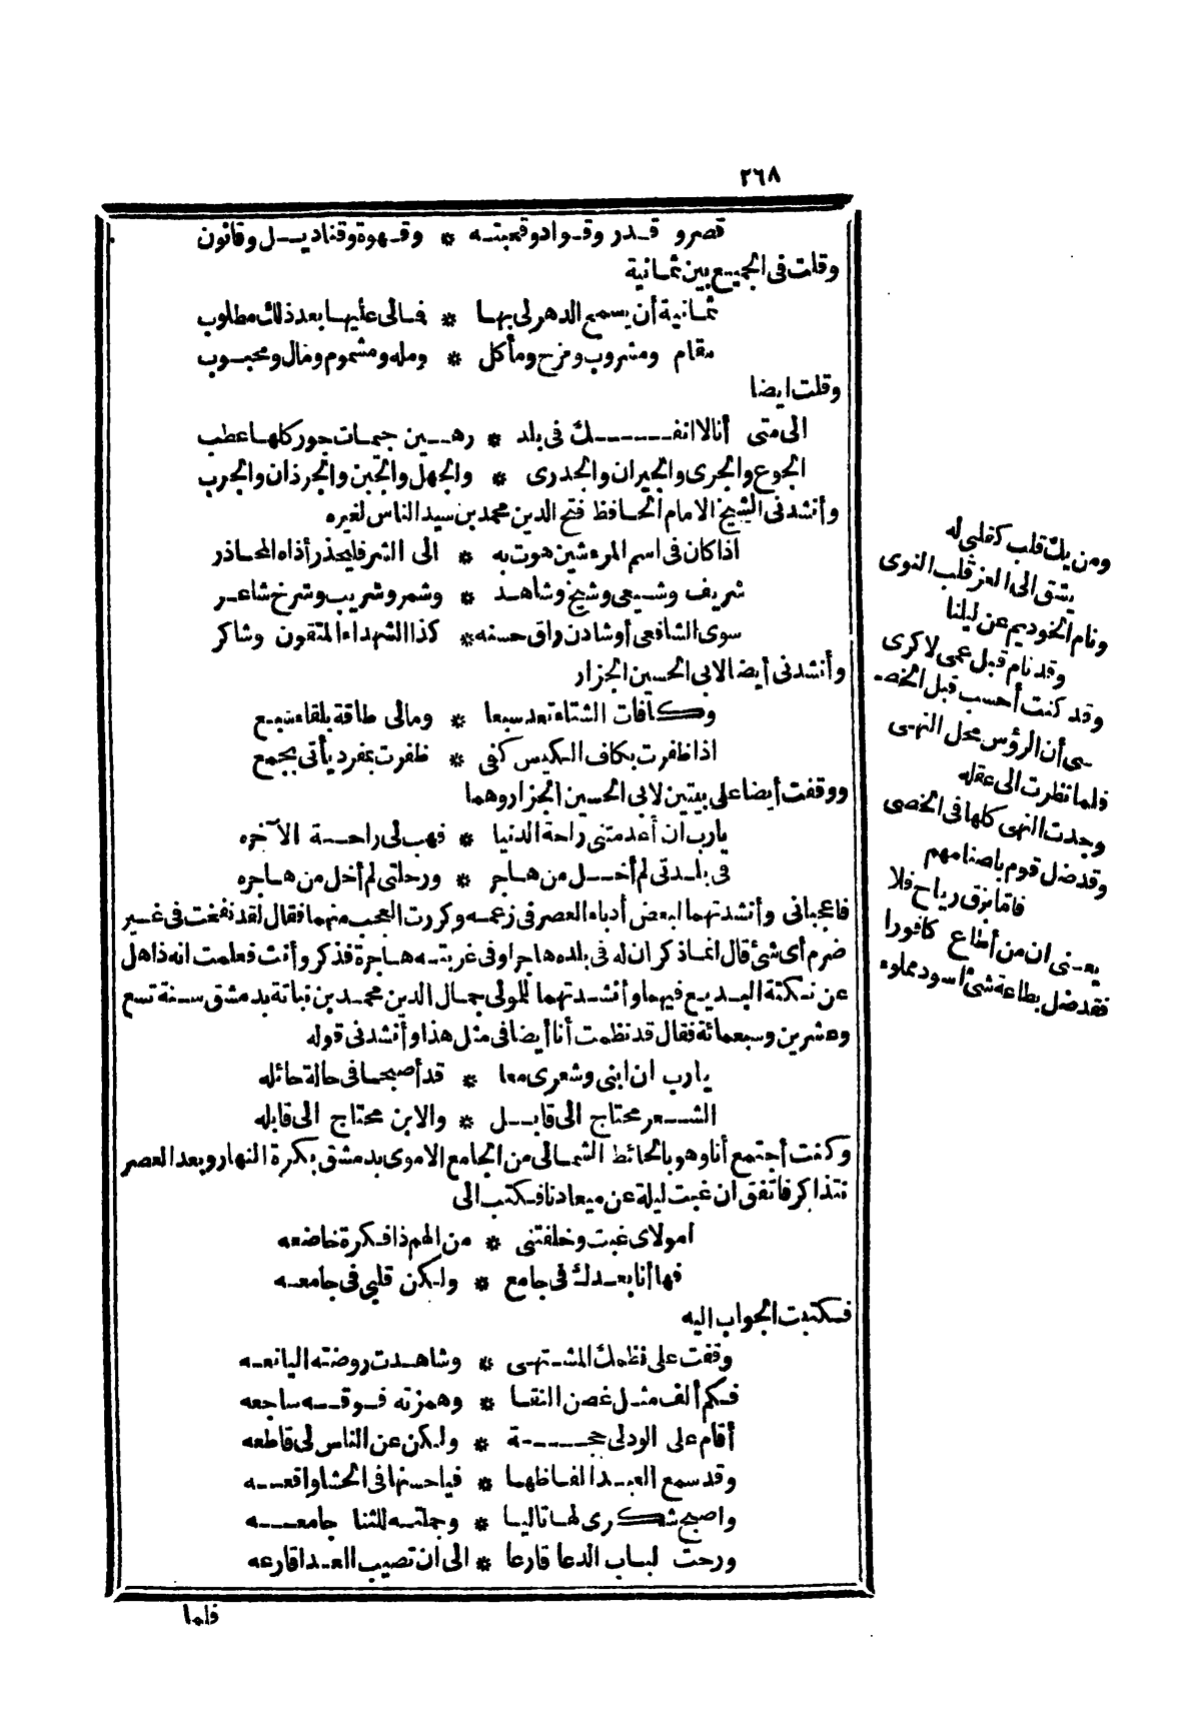 ٢٦٨
قصر و قدر وقواد وقحبته * وقهوة وقناديل وقانون
وقلت فى الجميع بين ثمانية
ثمانية أن يسمع الدهر لى بها * فمالى عليها بعد ذلك مطلوب
مقام ومشروب ومزح ومأكل * ومله ومشموم ومال ومحبوب
وقلت ايضا
الى متى أنا لا انفك فى بلد * رهين جيمات جور كلها عطب
الجوع والجرى والجيران والجدرى * والجهل والجبن والجرذان والجرب
وأنشدنى الشيخ الامام الحافظ فتح الدين محمد بن سيد الناس لغيره
اذا كان فى اسم المرء شين هوت به * الى الشر فليحذر أذاه المحاذر
شريف وشيعى وشيخ وشاهد * وشمر وشريب وشرخ شاعر
سوى الشافعى أو شادن راق حسنه * كذا الشهداء المتقون وشاكر
وأنشدنى أيضا لابى الحسين الجزار
وكافات الشتاء تعد سبعا * ومالى طاقة بلقاء سبع
اذا ظفرت بكاف الكيس كفى * ظفرت بمفرد يأتى بجمع
ووقفت أيضا على بيتين لابى الحسين الجزار وهما
يارب ان أعدمتنى راحة الدنيا * فهب لى راحة الآخره
فى بلدتى لم أخل من هاجر * ورحلتى لم أخل من هاجره
فاعجبانى وأنشدتهما لبعض أدباء العصر فى زعمه وكررت العجب منهما فقال لقد نفخت فى غير
ضرم أى شئ قال انما ذكر ان له فى بلده هاجرا وفى غربته هاجرة فذكر وأنث فعلمت انه ذاهل
عن نكتة البديع فيهما وأنشدتهما للمولى جمال الدين محمد بن نباتة بدمشق سنة تسع
وعشرين وسبعمائة فقال قد نظمت أنا أيضا فى مثل هذا وأنشدنى قوله
يارب ان ابنى وشعرى معا * قد أصبحا فى حالة حائله
الشعر محتاج الى قابل * والابن محتاج الى قابله
وكنت أجتمع أنا وهو بالحائط الشمالى من الجامع الاموى بدمشق بكرة النهار وبعد العصر
نتذاكر فاتفق ان غبت ليلة عن ميعادنا فكتب الى
امولاى غبت وخلفتنى * من الهم ذا فكرة خاضعه
فها أنا بعدك فى جامع * ولكن قلبى فى جامعه
فكتبت الجواب اليه
وقفت على نظمك المشتهى * وشاهدت روضته اليانعه
فكم ألف مثل غصن النقا * وهمزته فوقه ساجعه
أقام على الود لى حجة * ولكن عن الناس لى قاطعه
وقد سمع العبد ألفاظها * فيا حسنها فى الحشا واقعه
واصبح شكرى لها تاليا * وجملته للثنا جامعه
ورحت لباب الدعا قارعا * الى ان تصيب العدا قارعه
فلما
ومن يك قلب كقلبى له
يشق الى العز قلب النوى
ونام الخويدم عن ليلنا
وقد نام قبل عمى لا كرى
وقد كنت أحسب قبل الخصـ
ـى أن الرؤس محل النهى
فلما نظرت الى عقله
وجدت النهى كلها فى الخصى
وقد ضل قوم باصنامهم
فاما بزق رياح فلا
يعنى ان من أطاع كافورا
فقد ضل بطاعة شئ أسود مملوء